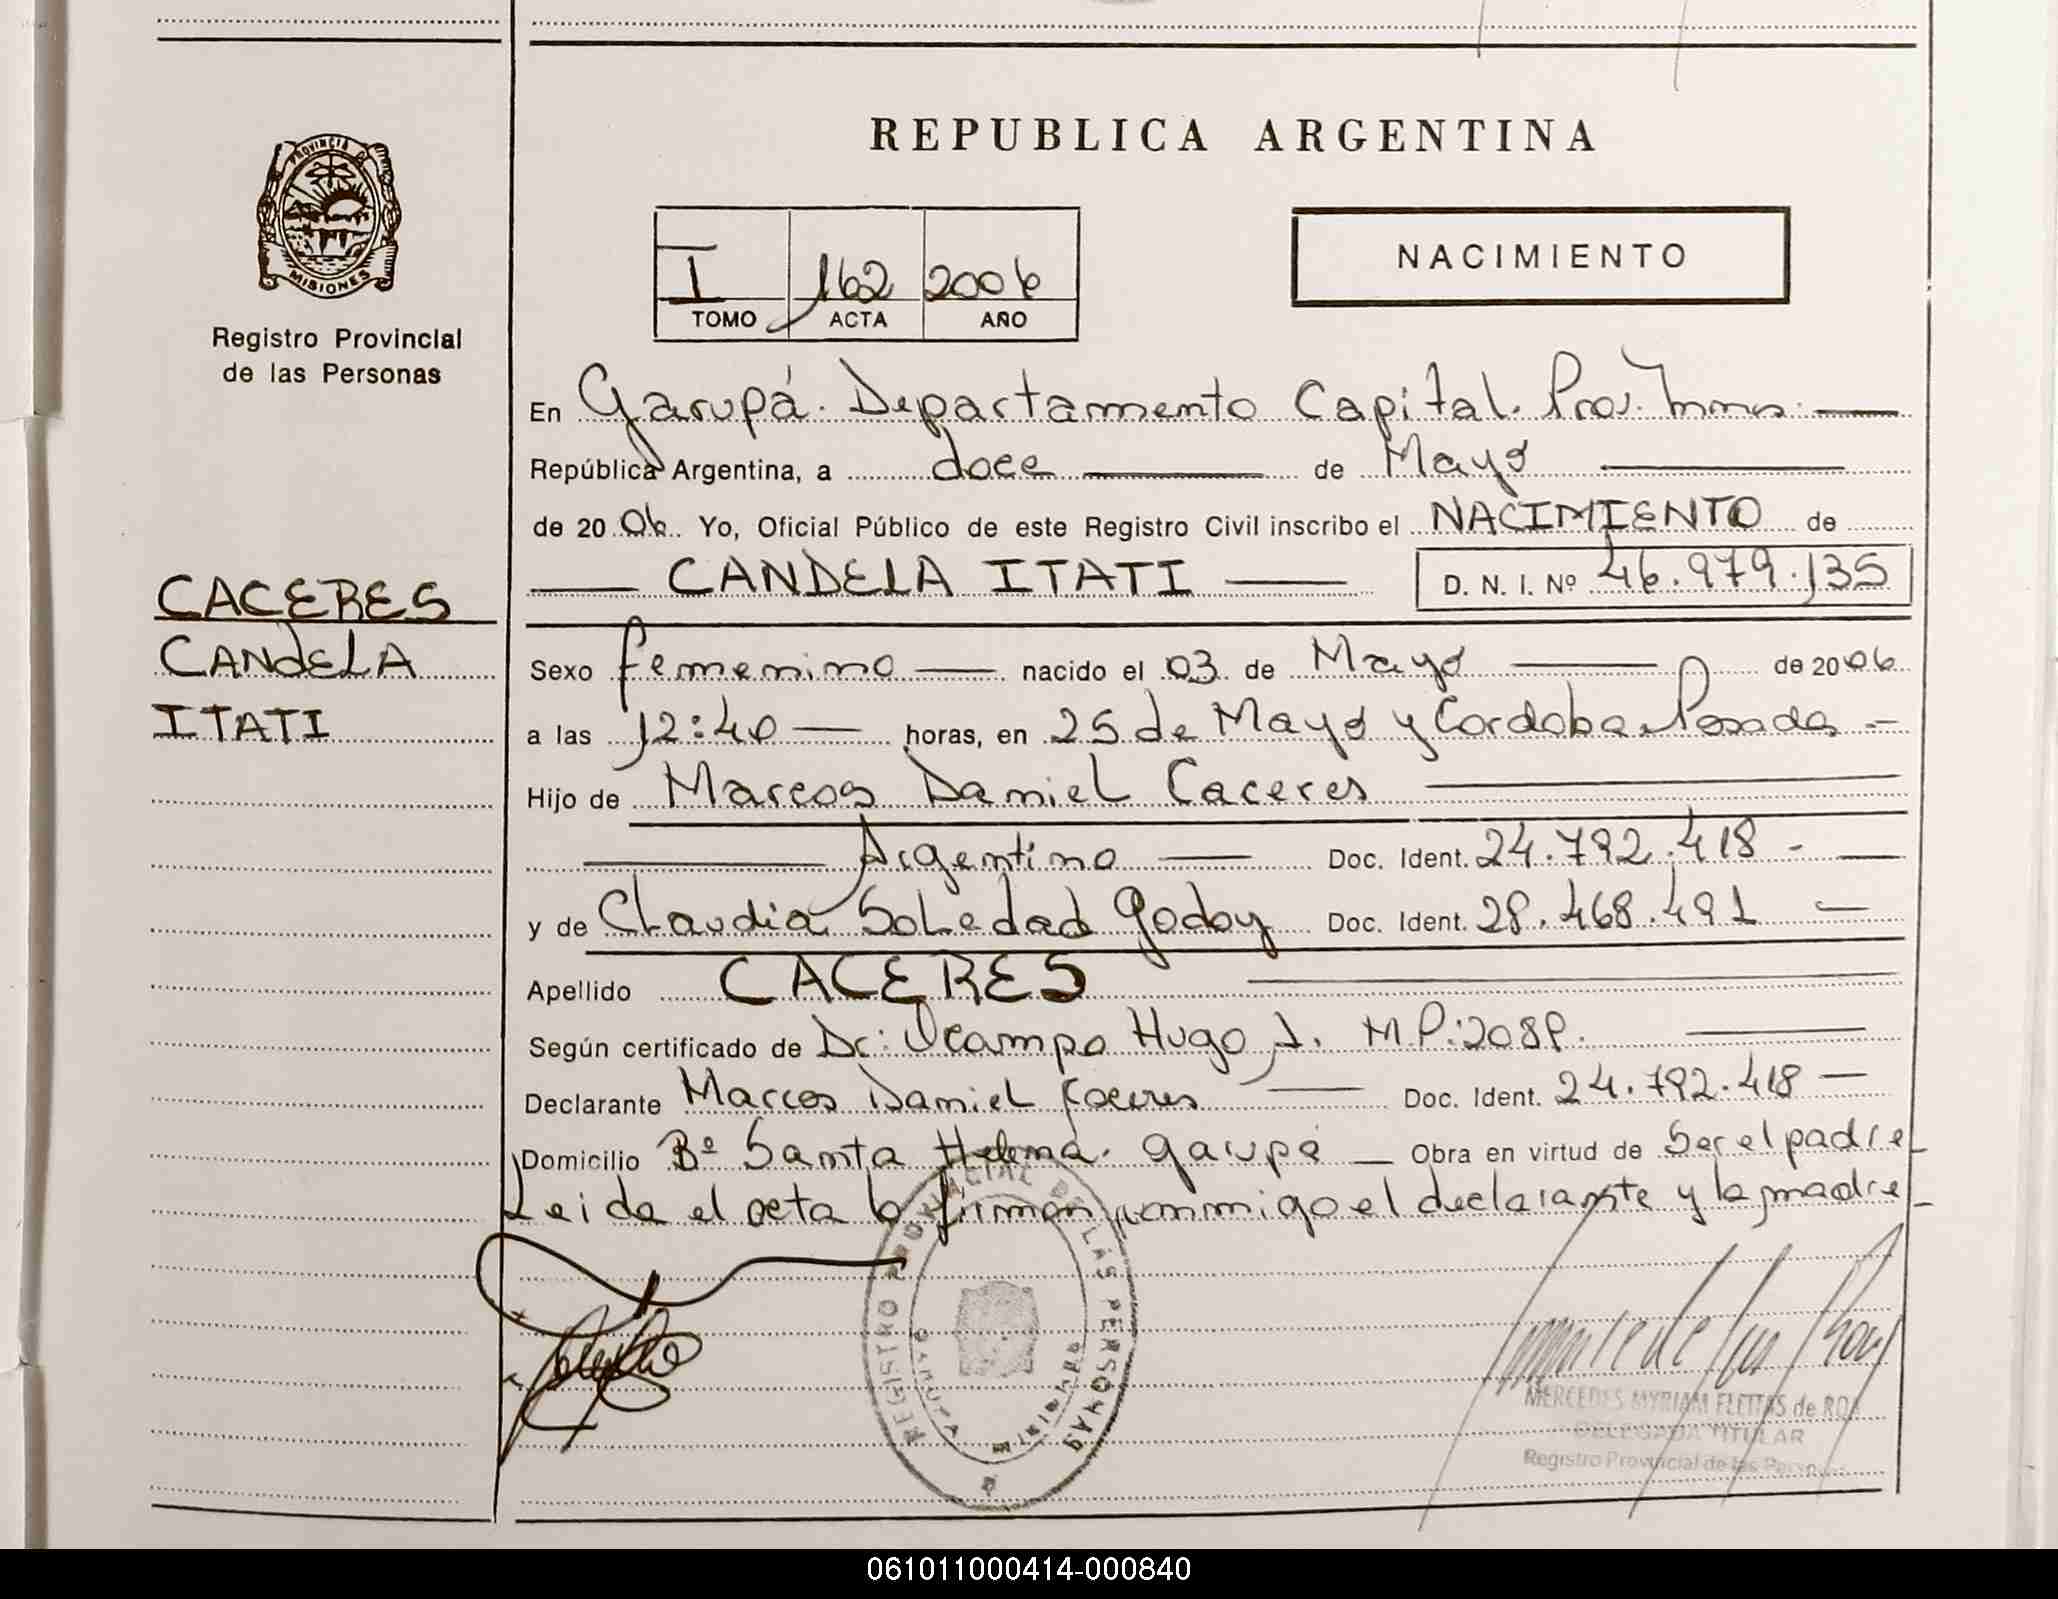 REPUBLICA ARGENTINA
PROVINCIA D
MISIONES
Registro Provincial
de las Personas
I 162 2006
TOMO ACTA AÑO
NACIMIENTO
En Garupá. Departamento Capital. Prov. Mnes.
República Argentina, a doce de Mayo
de 2006 Yo, Oficial Público de este Registro Civil inscribo el NACIMIENTO de
CANDELA ITATI D. N. I. Nº 46.979.135
CACERES
CANDELA
ITATI
Sexo femenino nacido el 03 de Mayo de 2006
a las 12:40 horas, en 25 de Mayo y Cordoba Posadas
Hijo de Marcos Daniel Caceres
Argentino Doc. Ident. 24.792.418
y de Claudia Soledad Godoy Doc. Ident. 28.468.491
Apellido CACERES
Según certificado de Dr: Ocampo Hugo J. M.P:
Declarante Marcos Daniel Caceres Doc. Ident. 24.792.418
Domicilio Bº Santa Helena. Garupá Obra en virtud de Ser el padre
Leida el acta la firman conmigo el declarante y la madre
REGISTRO PROVINCIAL DE LAS PERSONAS
GARUPA MISIONES
MERCEDES MYRIAM FLEITAS de
DELEGADA TITULAR
Registro Provincial de las Personas
061011000414-000840